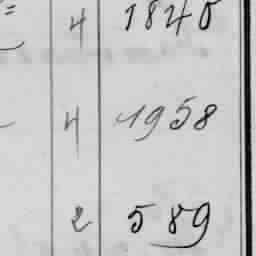 4 1840
4 1958
2 589